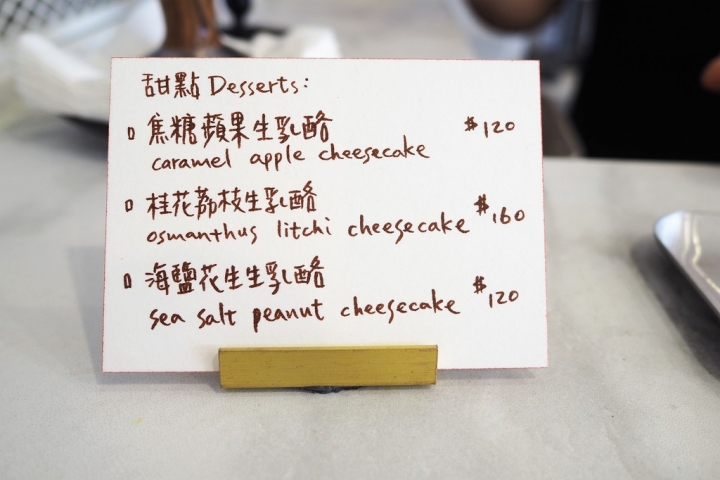 甜點 Desserts:
▯ 焦糖蘋果生乳酪 $120
caramel apple cheesecake
▯ 桂花荔枝生乳酪 $160
osmanthus litchi cheesecake
▯ 海鹽花生生乳酪 $120
sea salt peanut cheesecake